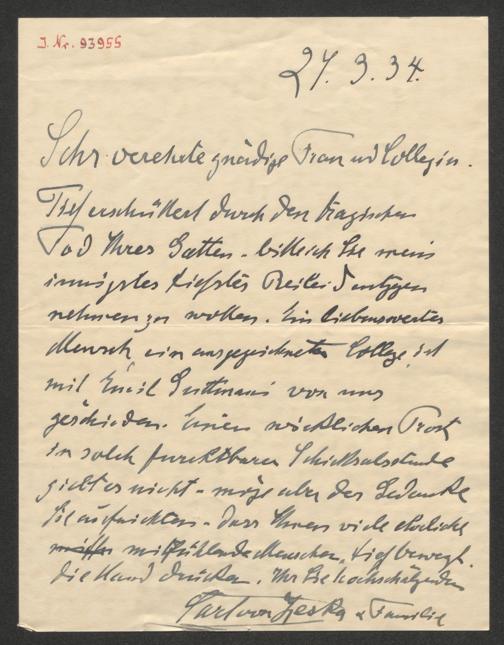 J. Nr. 93955
27. 3. 34.
Sehr verehrte gnädige Frau und Collegin.
Tief erschüttert durch den tragischen
Tod Ihres Gatten - bitte ich Sie mein
innigstes tiefstes Beileid entgegen
nehmen zu wollen. Ein liebenswerter
Mensch, ein ausgezeichneter College, ist
mit Emil Guttmann von uns
geschieden. Einen wirklichen Trost
in solch furchtbarer Schicksalsstunde
giebt es nicht - möge aber der Gedanke
Sie aufrichten - dass Ihnen viele ehrliche
mitfühlende Menschen, tief bewegt.
die Hand drücken. Ihr Sie hochschätzender
Carl von Zeska & Familie